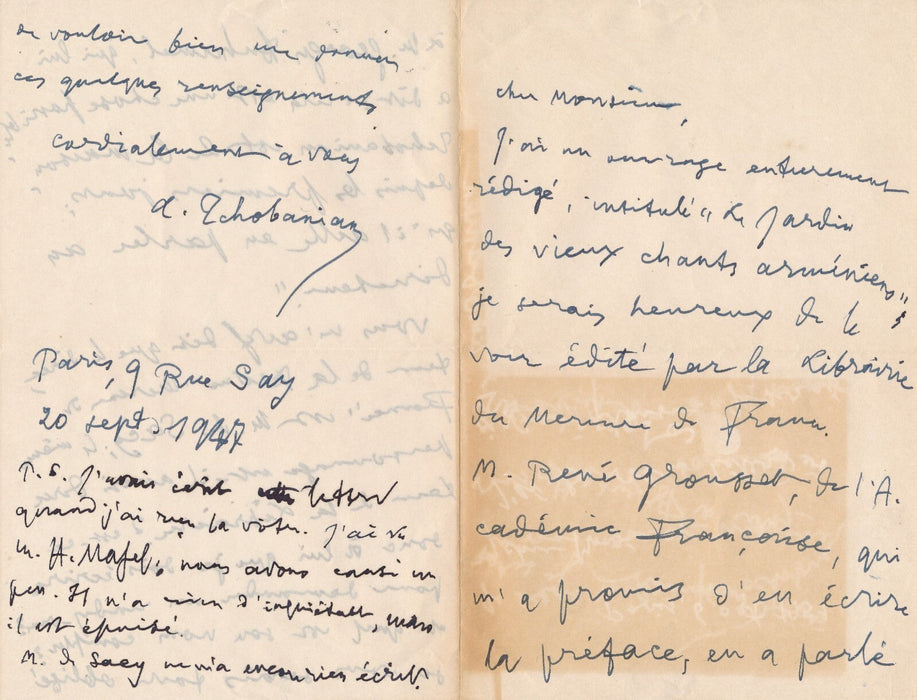 cher Monsieur,
J'ai un ouvrage entièrement
rédigé, intitulé "Le Jardin
des vieux chants arméniens";
je serais heureux de le
voir édité par la Librairie
du Mercure de France.
M. René Grousset, de l'A-
cadémie Française, qui
m'a promis d'en écrire
la préface, en a parlé
de vouloir bien me donner
ces quelques renseignements
cordialement à vous
A. Tchobanian
Paris, 9 Rue Say
20 sept. 1947
P.S. J'avais écrit cette lettre
quand j'ai reçu la vôtre. J'ai vu
M. H. Mafel; nous avons causé un
peu. Il n'a rien d'inquiétant, mais
il est épuisé.
M. de Sacy ne m'a encore rien écrit.